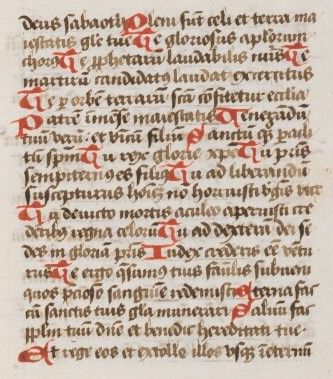 deus sabaoth Pleni sūt celi et terra ma
iestatis glē tue Te gloriosus aplorum
chorus Te pphetarū laudabilis nūs Te
martirum candidatus laudat exercitus
Te p orbem terrarum scā cōfitetur ecclia
Patrem īmēse maiestatis Venerādum
tuum verū et vnicū filiū Sanctū qz pacli
tū spm̄ Tu rex glorie xpe Tu pris
sempiternus es filius Tu ad liberandū
suscepturus hoīem nō horruisti vgīs vterū
Tu deuicto mortis aculeo aperuisti cre
dētibus regna celorū Tu ad dexterā dei se
des in gloria pris Iudex crederis eē ventu
rus Te ergo qsumus tuis famlis subueni
quos pcioso sanguine redemisti Eterna fac
cū sanctis tuis gla munerari Saluū fac
pplm tuum dñe et benedic hereditati tue
Et rege eos et extolle illos vsqz ī eternū